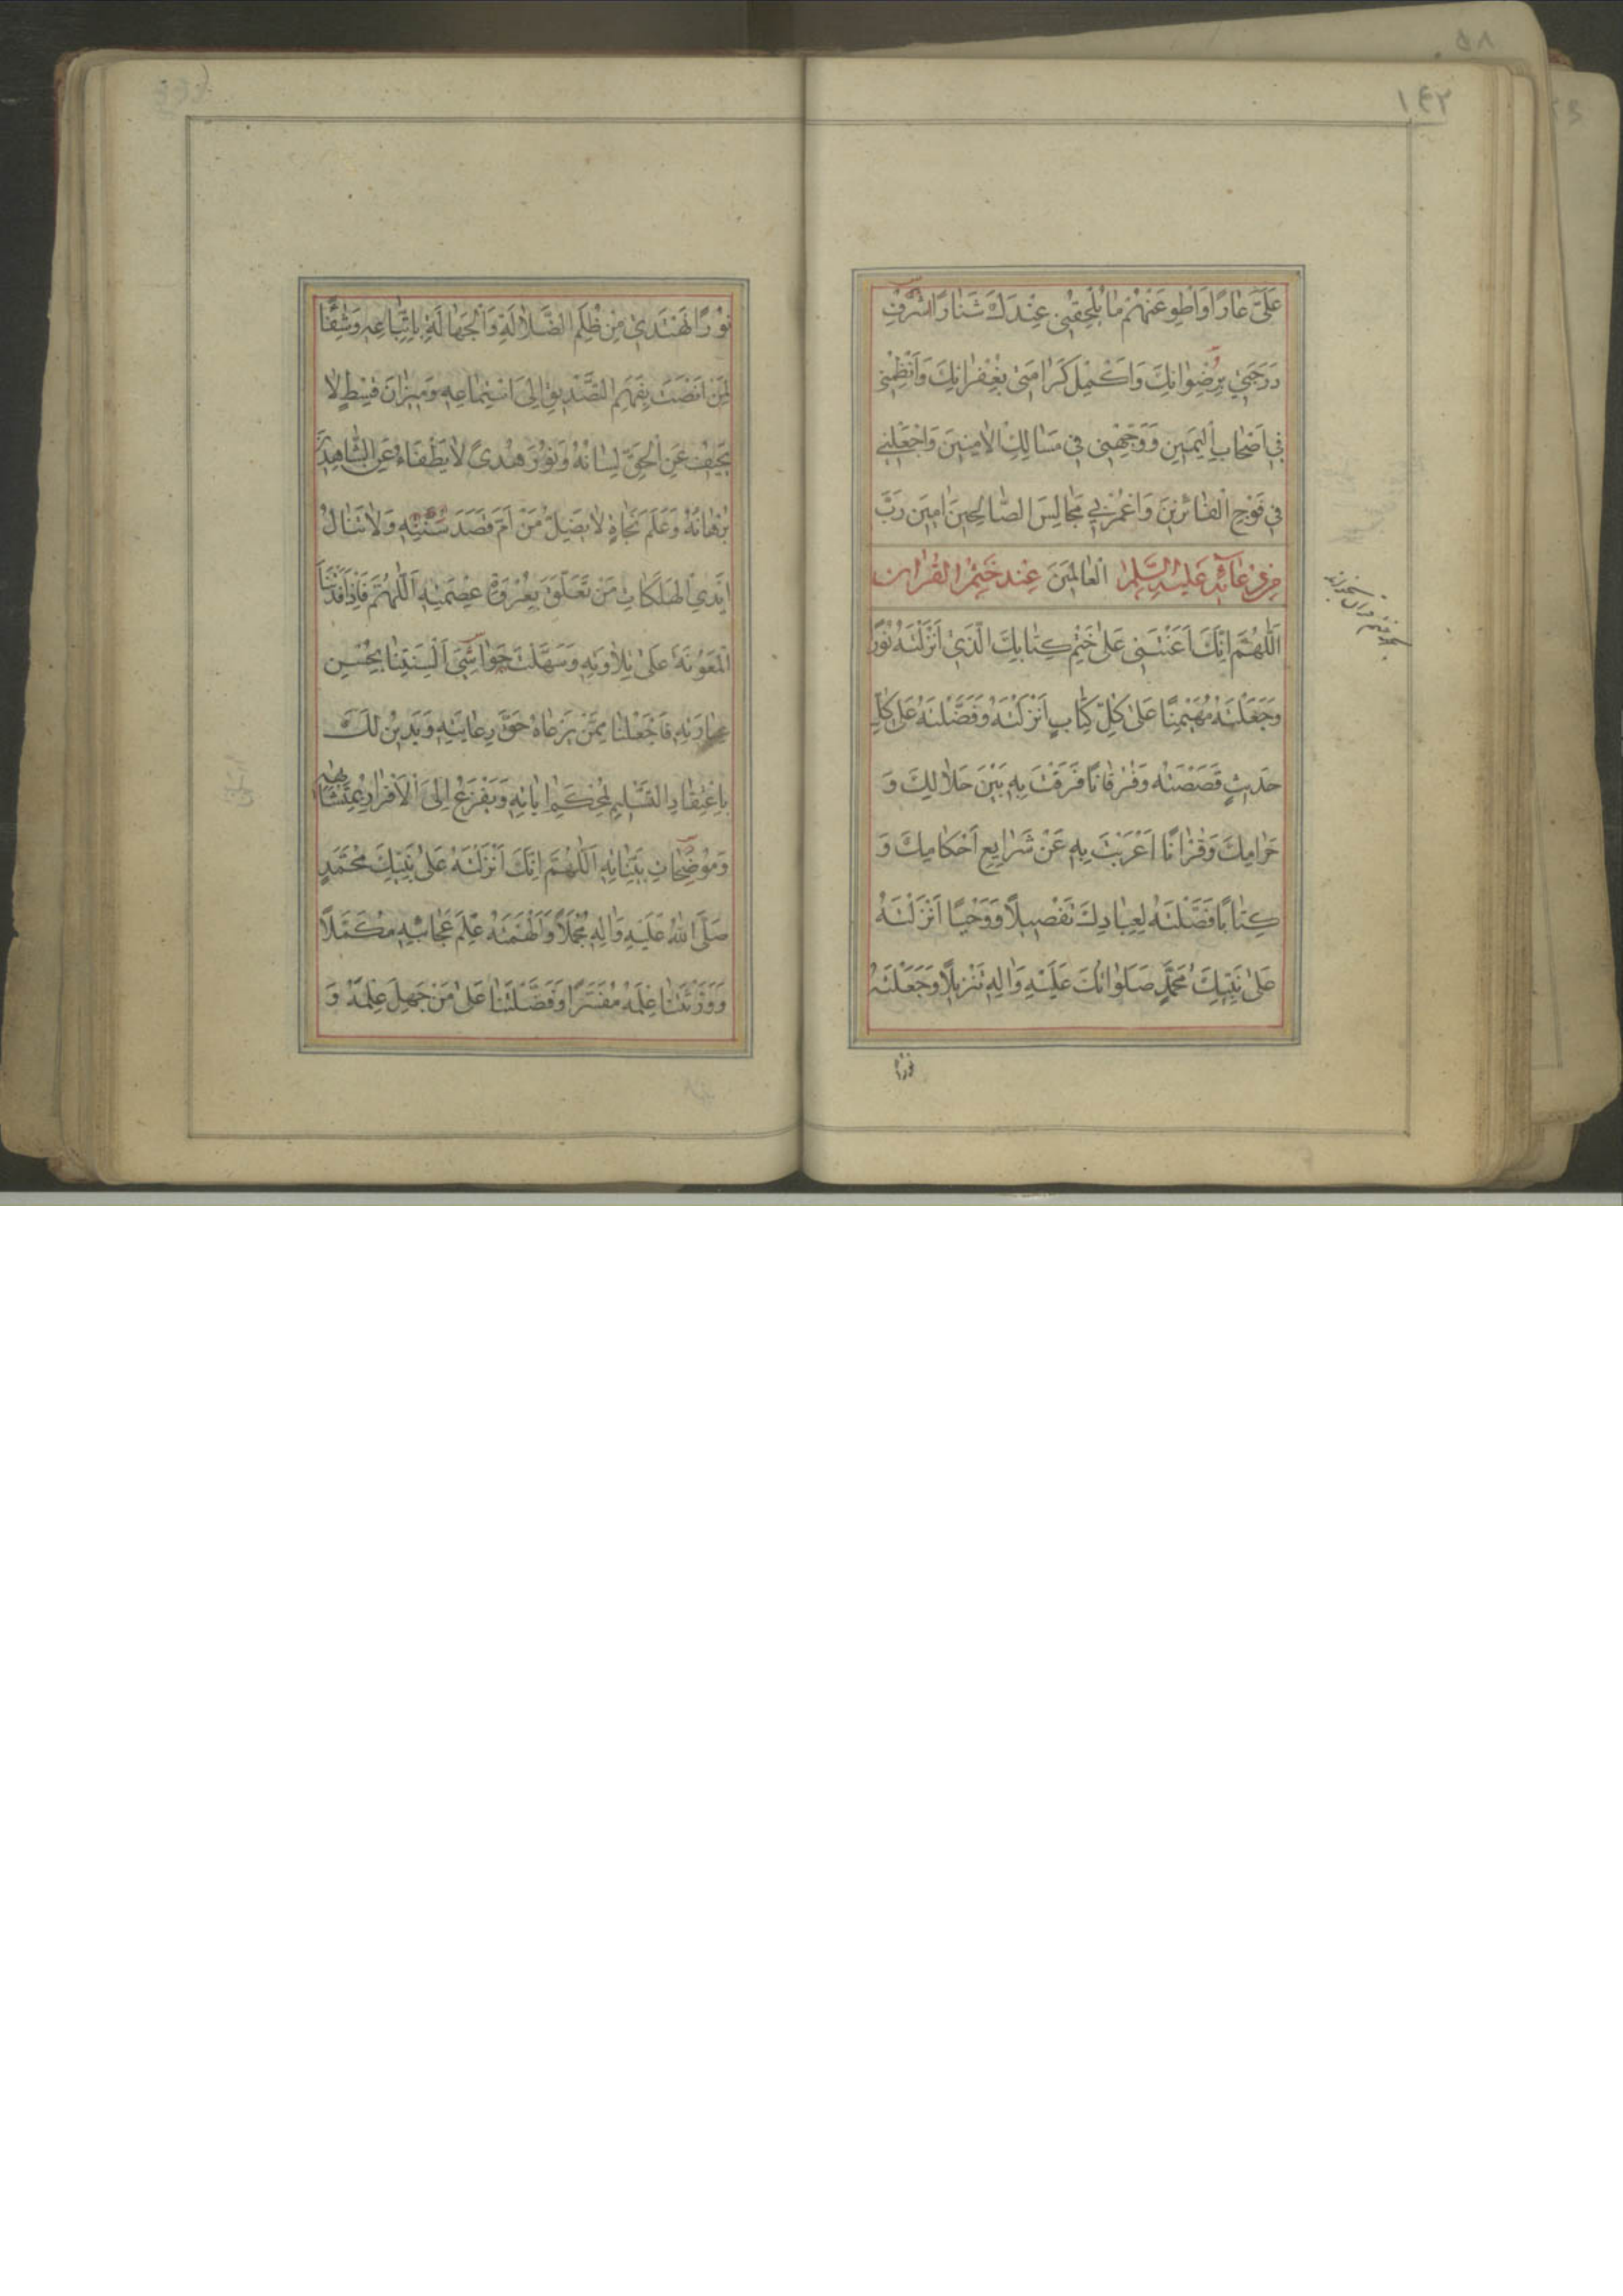 ١٤٢
عَلَيَّ عَارًا وَاطْوِ عَنْهُمْ مَا يُلْحِقُنِي عِنْدَكَ شَنَارًا شَرِّفْ
دَرَجَتِي بِرِضْوَانِكَ وَاَكْمِلْ كَرَامَتِي بِغُفْرَانِكَ وَانْظِمْنِي
فِي اَصْحَابِ الْيَمِينِ وَوَجِّهْنِي فِي مَسَالِكِ الْاٰمِنِينَ وَاجْعَلْنِي
فِي فَوْجِ الْفَائِزِينَ وَاعْمُرْ بِي مَجَالِسَ الصَّالِحِينَ اٰمِينَ رَبَّ
الْعَالَمِينَ
مِنْ دُعَائِهِ عَلَيْهِ السَّلَامُ عِنْدَ خَتْمِ الْقُرْاٰنِ
اَللّٰهُمَّ اِنَّكَ اَعَنْتَنِي عَلٰى خَتْمِ كِتَابِكَ الَّذِي اَنْزَلْتَهُ نُورًا
وَجَعَلْتَهُ مُهَيْمِنًا عَلٰى كُلِّ كِتَابٍ اَنْزَلْتَهُ وَفَضَّلْتَهُ عَلٰى كُلِّ
حَدِيثٍ قَصَصْتَهُ وَفُرْقَانًا فَرَقْتَ بِهِ بَيْنَ حَلَالِكَ وَ
حَرَامِكَ وَقُرْاٰنًا اَعْرَبْتَ بِهِ عَنْ شَرَايِعِ اَحْكَامِكَ وَ
كِتَابًا فَصَّلْتَهُ لِعِبَادِكَ تَفْصِيلًا وَوَحْيًا اَنْزَلْتَهُ
عَلٰى نَبِيِّكَ مُحَمَّدٍ صَلَوَاتُكَ عَلَيْهِ وَاٰلِهِ تَنْزِيلًا وَجَعَلْتَهُ
نورًا
نُورًا نَهْتَدِي مِنْ ظُلَمِ الضَّلَالَةِ وَالْجَهَالَةِ بِاتِّبَاعِهِ وَشِفَاءً
لِمَنْ اَنْصَتَ بِفَهَمِ التَّصْدِيقِ اِلَى اسْتِمَاعِهِ وَمِيزَانَ قِسْطٍ لَا
يَحِيفُ عَنِ الْحَقِّ لِسَانُهُ وَنُورَ هُدًى لَا يَطْفَاءُ عَنِ الشَّاهِدِينَ
بُرْهَانُهُ وَعَلَمَ نَجَاةٍ لَا يَضِلُّ مَنْ اَمَّ قَصْدَ سُنَّتِهِ وَلَا تَنَالُ
اَيْدِي الْهَلَكَاتِ مَنْ تَعَلَّقَ بِعُرْوَةِ عِصْمَتِهِ اَللّٰهُمَّ فَاِذْ اَفَدْتَنَا
الْمَعُونَةَ عَلٰى تِلَاوَتِهِ وَسَهَّلْتَ جَوَاسِيَ اَلْسِنَتِنَا بِحُسْنِ
عِبَارَتِهِ فَاجْعَلْنَا مِمَّنْ يَرْعَاهُ حَقَّ رِعَايَتِهِ وَيَدِينُ لَكَ
بِاعْتِقَادِ التَّسْلِيمِ لِمُحْكَمِ اٰيَاتِهِ وَيَفْزَعُ اِلَى الْاِقْرَارِ بِمُتَشَابِهِهِ
وَمُوضَحَاتِ بَيِّنَاتِهِ اَللّٰهُمَّ اِنَّكَ اَنْزَلْتَهُ عَلٰى نَبِيِّكَ مُحَمَّدٍ
صَلَّى اللهُ عَلَيْهِ وَاٰلِهِ مُجْمَلًا وَاَلْهَمْتَهُ عِلْمَ عَجَائِبِهِ مُكَمَّلًا
وَوَرَّثْتَنَا عِلْمَهُ مُفَسَّرًا وَفَضَّلْتَنَا عَلٰى مَنْ جَهِلَ عِلْمَهُ وَ